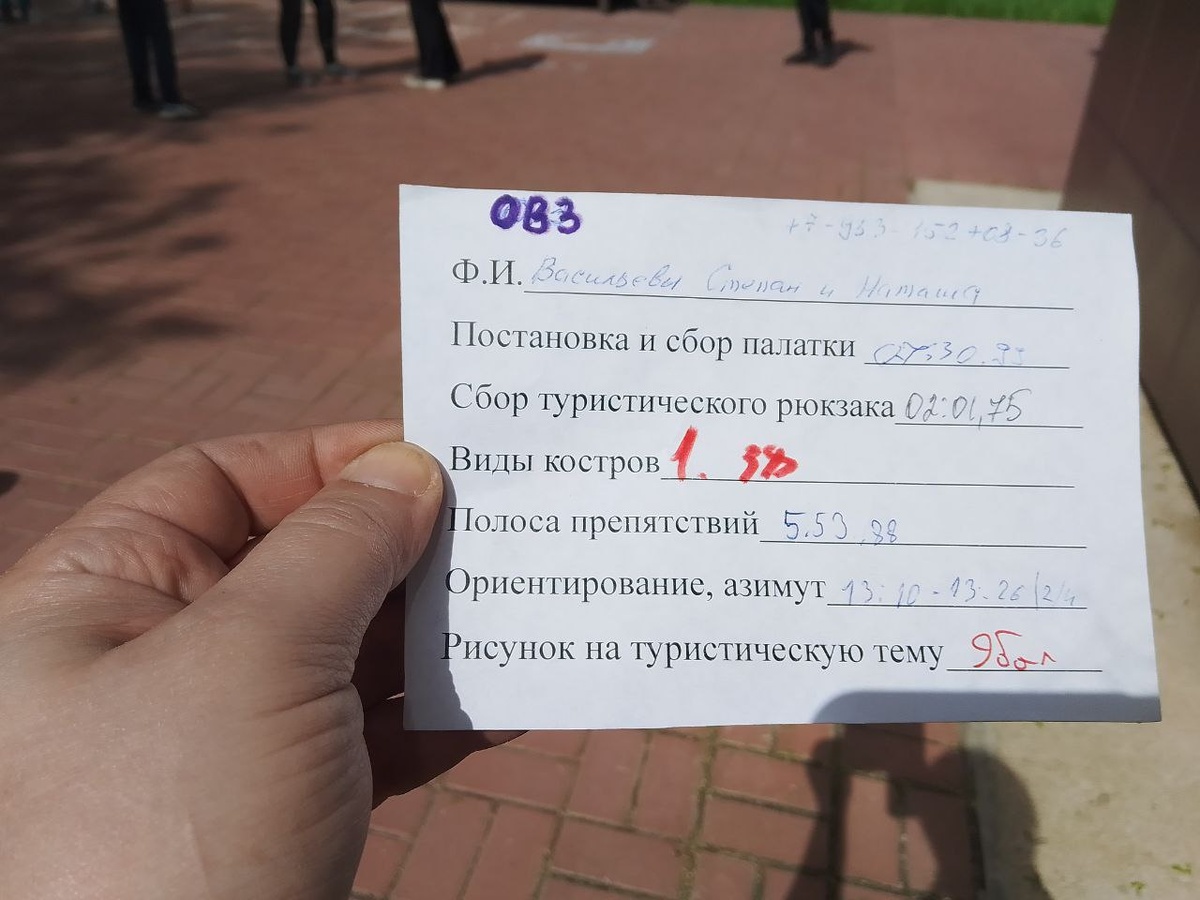 ОВЗ
Ф.И. Васильевы Степан и Наташа
Постановка и сбор палатки 07:30.99
Сбор туристического рюкзака 02:01,75
Виды костров 1.
Полоса препятствий 5.53,88
Ориентирование, азимут 13:10 - 13:26
Рисунок на туристическую тему 9бал